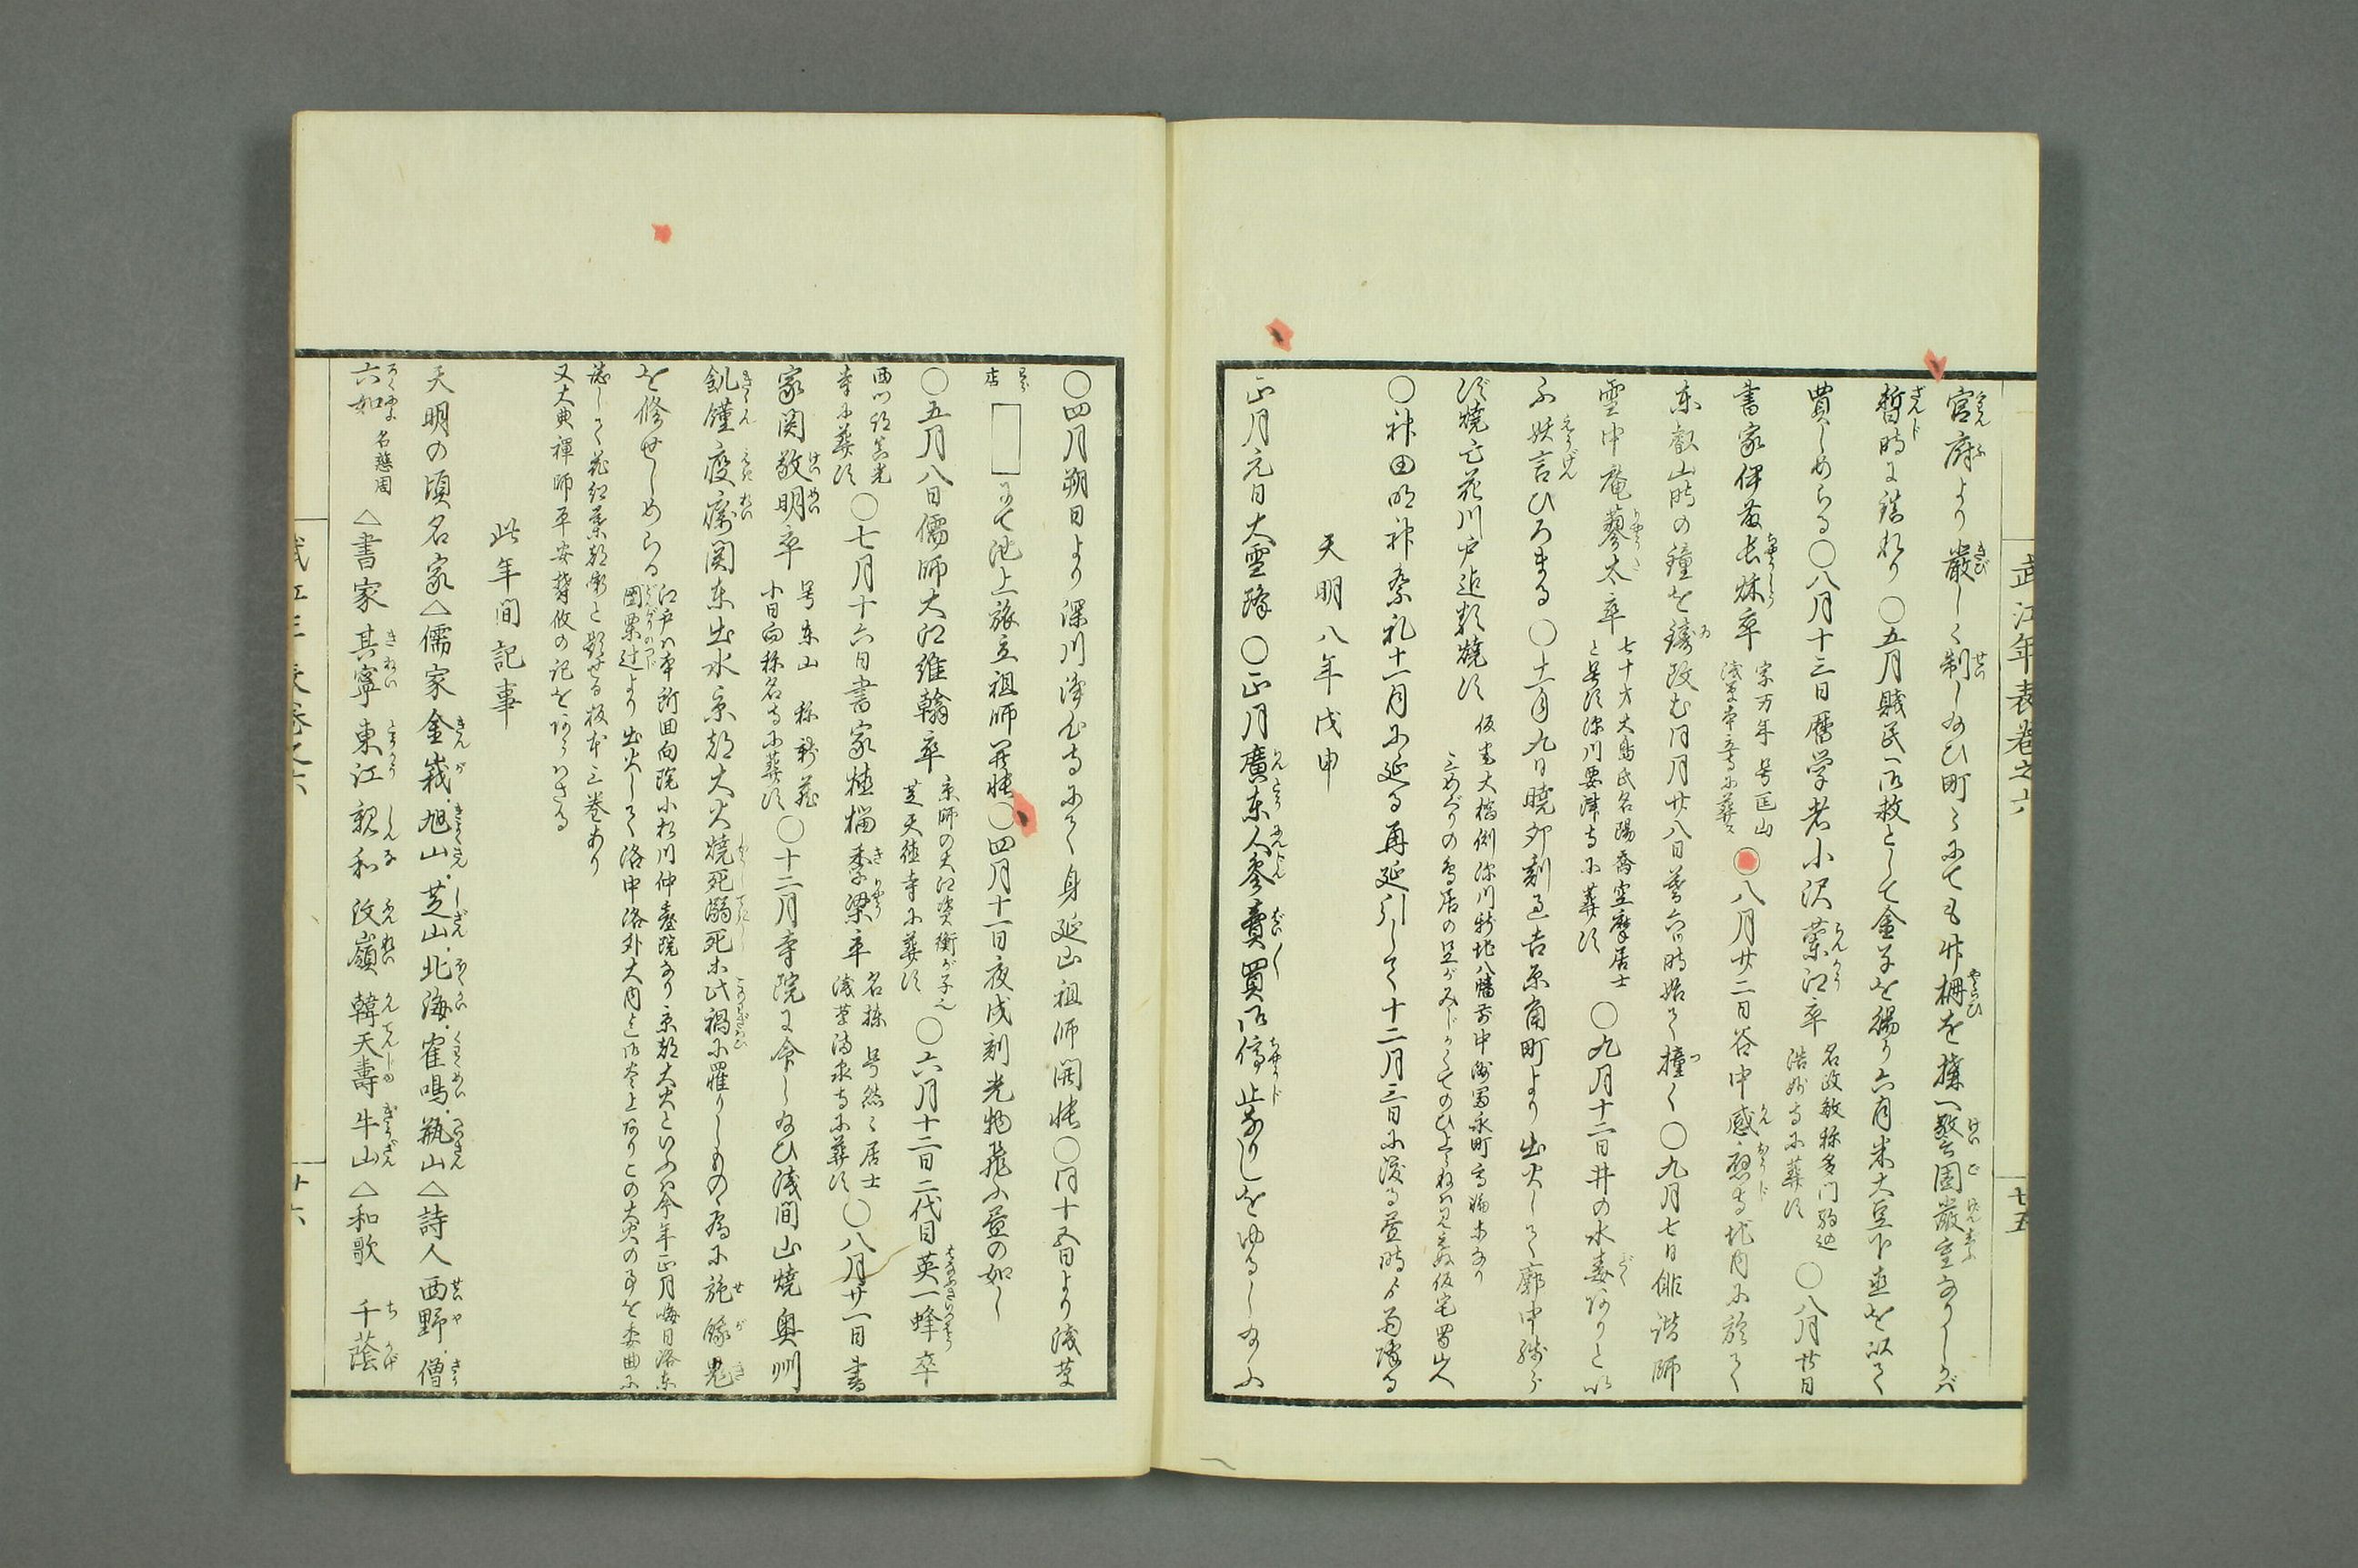 武江年表巻之六
廿五
官府より厳しく制し給ひ町々にても竹柵を構へ警固厳重なりしかバ
暫時に鎮れり○五月賤民御救として金子を賜り六月米大豆下直を以て
買しめらる○八月十三日暦学者小沢蘭江卒 名政敏称多門駒込 浩妙寺に葬す ○八月廿日
書家伊藤長秋卒 宗万年号匡山 浅草幸竜寺に葬ス ○八月廿二日谷中感應寺地内に於て
東叡山時の鐘を鋳改む同月廿八日暮六時始て撞く○九月七日俳諧師
雪中庵蓼太卒 七十才大島氏名陽喬空摩居士 と号す深川要津寺に葬す ○九月十二日井の水毒ありとい
ふ妖言ひろまる○十一月九日暁卯刻過吉原角町より出火して廓中残ら
ず焼亡花川戸迄類焼す 仮宅大橋側深川新地八幡前中洲冨永町高輪等なり 三めぐりの鳥居の
○神田明神祭礼十一月に延る再延引して十二月三日に渡る昼時より雨降る
天明八年戊申
正月元日大雪降○正月廣東人参賣買御停止なりしをゆるし給ふ
○四月朔日より深川浄心寺にて身延山祖師開帳○同十五日より浅草
店 にて池上旅立祖師開帳○四月十一日夜戌刻光物飛ふ昼の如し
○五月八日儒師大江維翰卒 京師の大江資衡が子也 芝天徳寺に葬す ○六月十二日二代目英一蜂卒
西川 寺に葬す ○七月十六日書家植村季梁卒 名棟 号然々居士 浅草 寺に葬す ○八月廿一日書
家関敬明卒 号東山 称新蔵 小日向称名寺に葬す ○十二月寺院に令し給ひ浅間山焼奥州
飢饉疫癘関東出水京都大火焼死溺死等此禍に罹りしものゝ為に施餓鬼
を修せしめらる 江戸ハ本所回向院小松川仲臺院なり京都大火といふハ今年正月晦日洛東 團栗辻より出火して洛中洛外大内迄御炎上ありこの大火の事を委曲に
誌して花紅葉都噺と題せる板本三巻あり
又大典禅師平安 の記をあらハさる
此年間記事
天明の頃名家△儒家 金峩 旭山 芝山 北海 寉鳴 瓶山△詩人 西野 僧
六如 名慈周 △書家 其寧 東江 親和 汶嶺 韓天壽 牛山△和歌 千蔭
武江年表巻之六
廿六